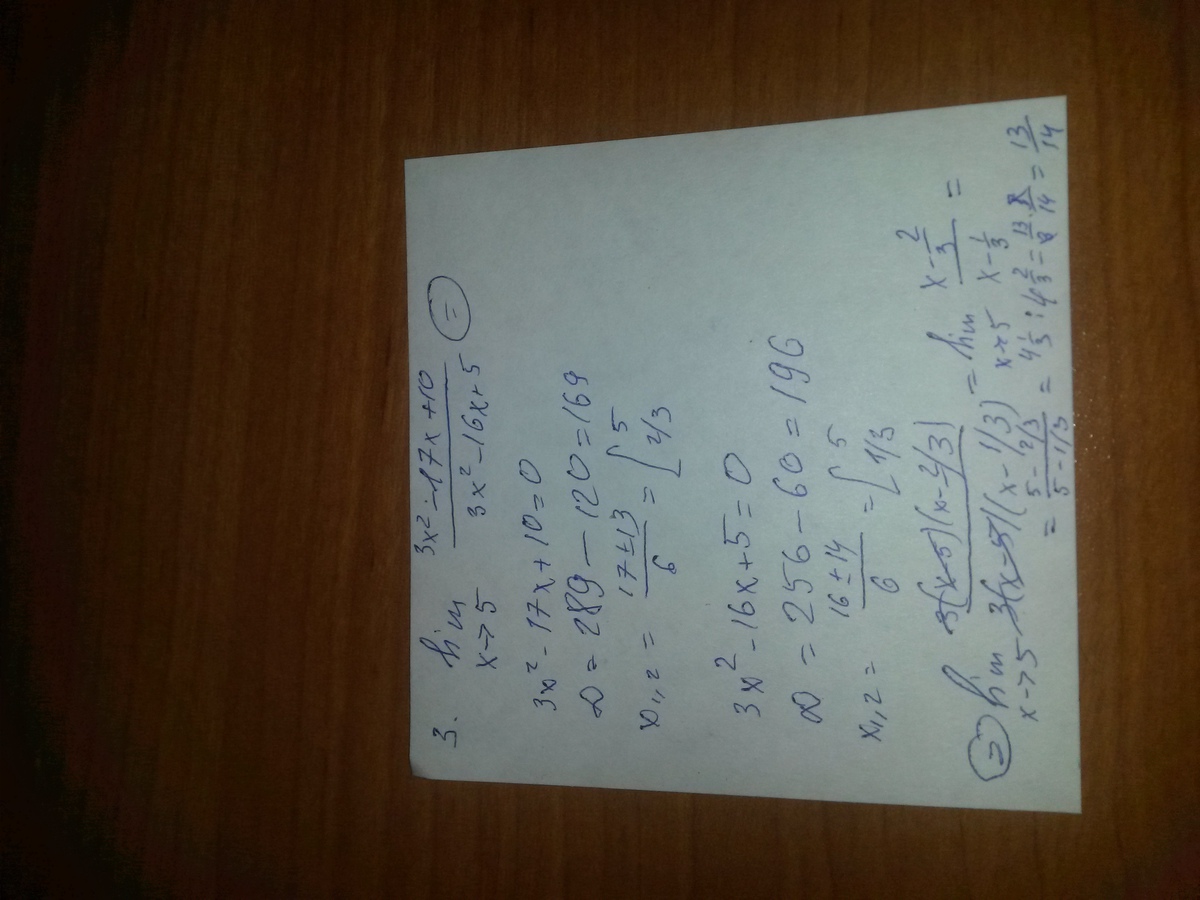 3. lim x→5 (3x² - 17x + 10)/(3x² - 16x + 5) (=)
3x² - 17x + 10 = 0
D = 289 - 120 = 169
x₁,₂ = (17 ± 13)/6 = [ 5 2/3
3x² - 16x + 5 = 0
D = 256 - 60 = 196
x₁,₂ = (16 ± 14)/6 = [ 5 1/3
(=) lim x→5 3(x-5)(x-2/3)/3(x-5)(x-1/3) = lim x→5 (x - 2/3)/(x - 1/3) =
= (5 - 2/3)/(5 - 1/3) = 4 1/3 : 4 2/3 = 13/3 · 3/14 = 13/14